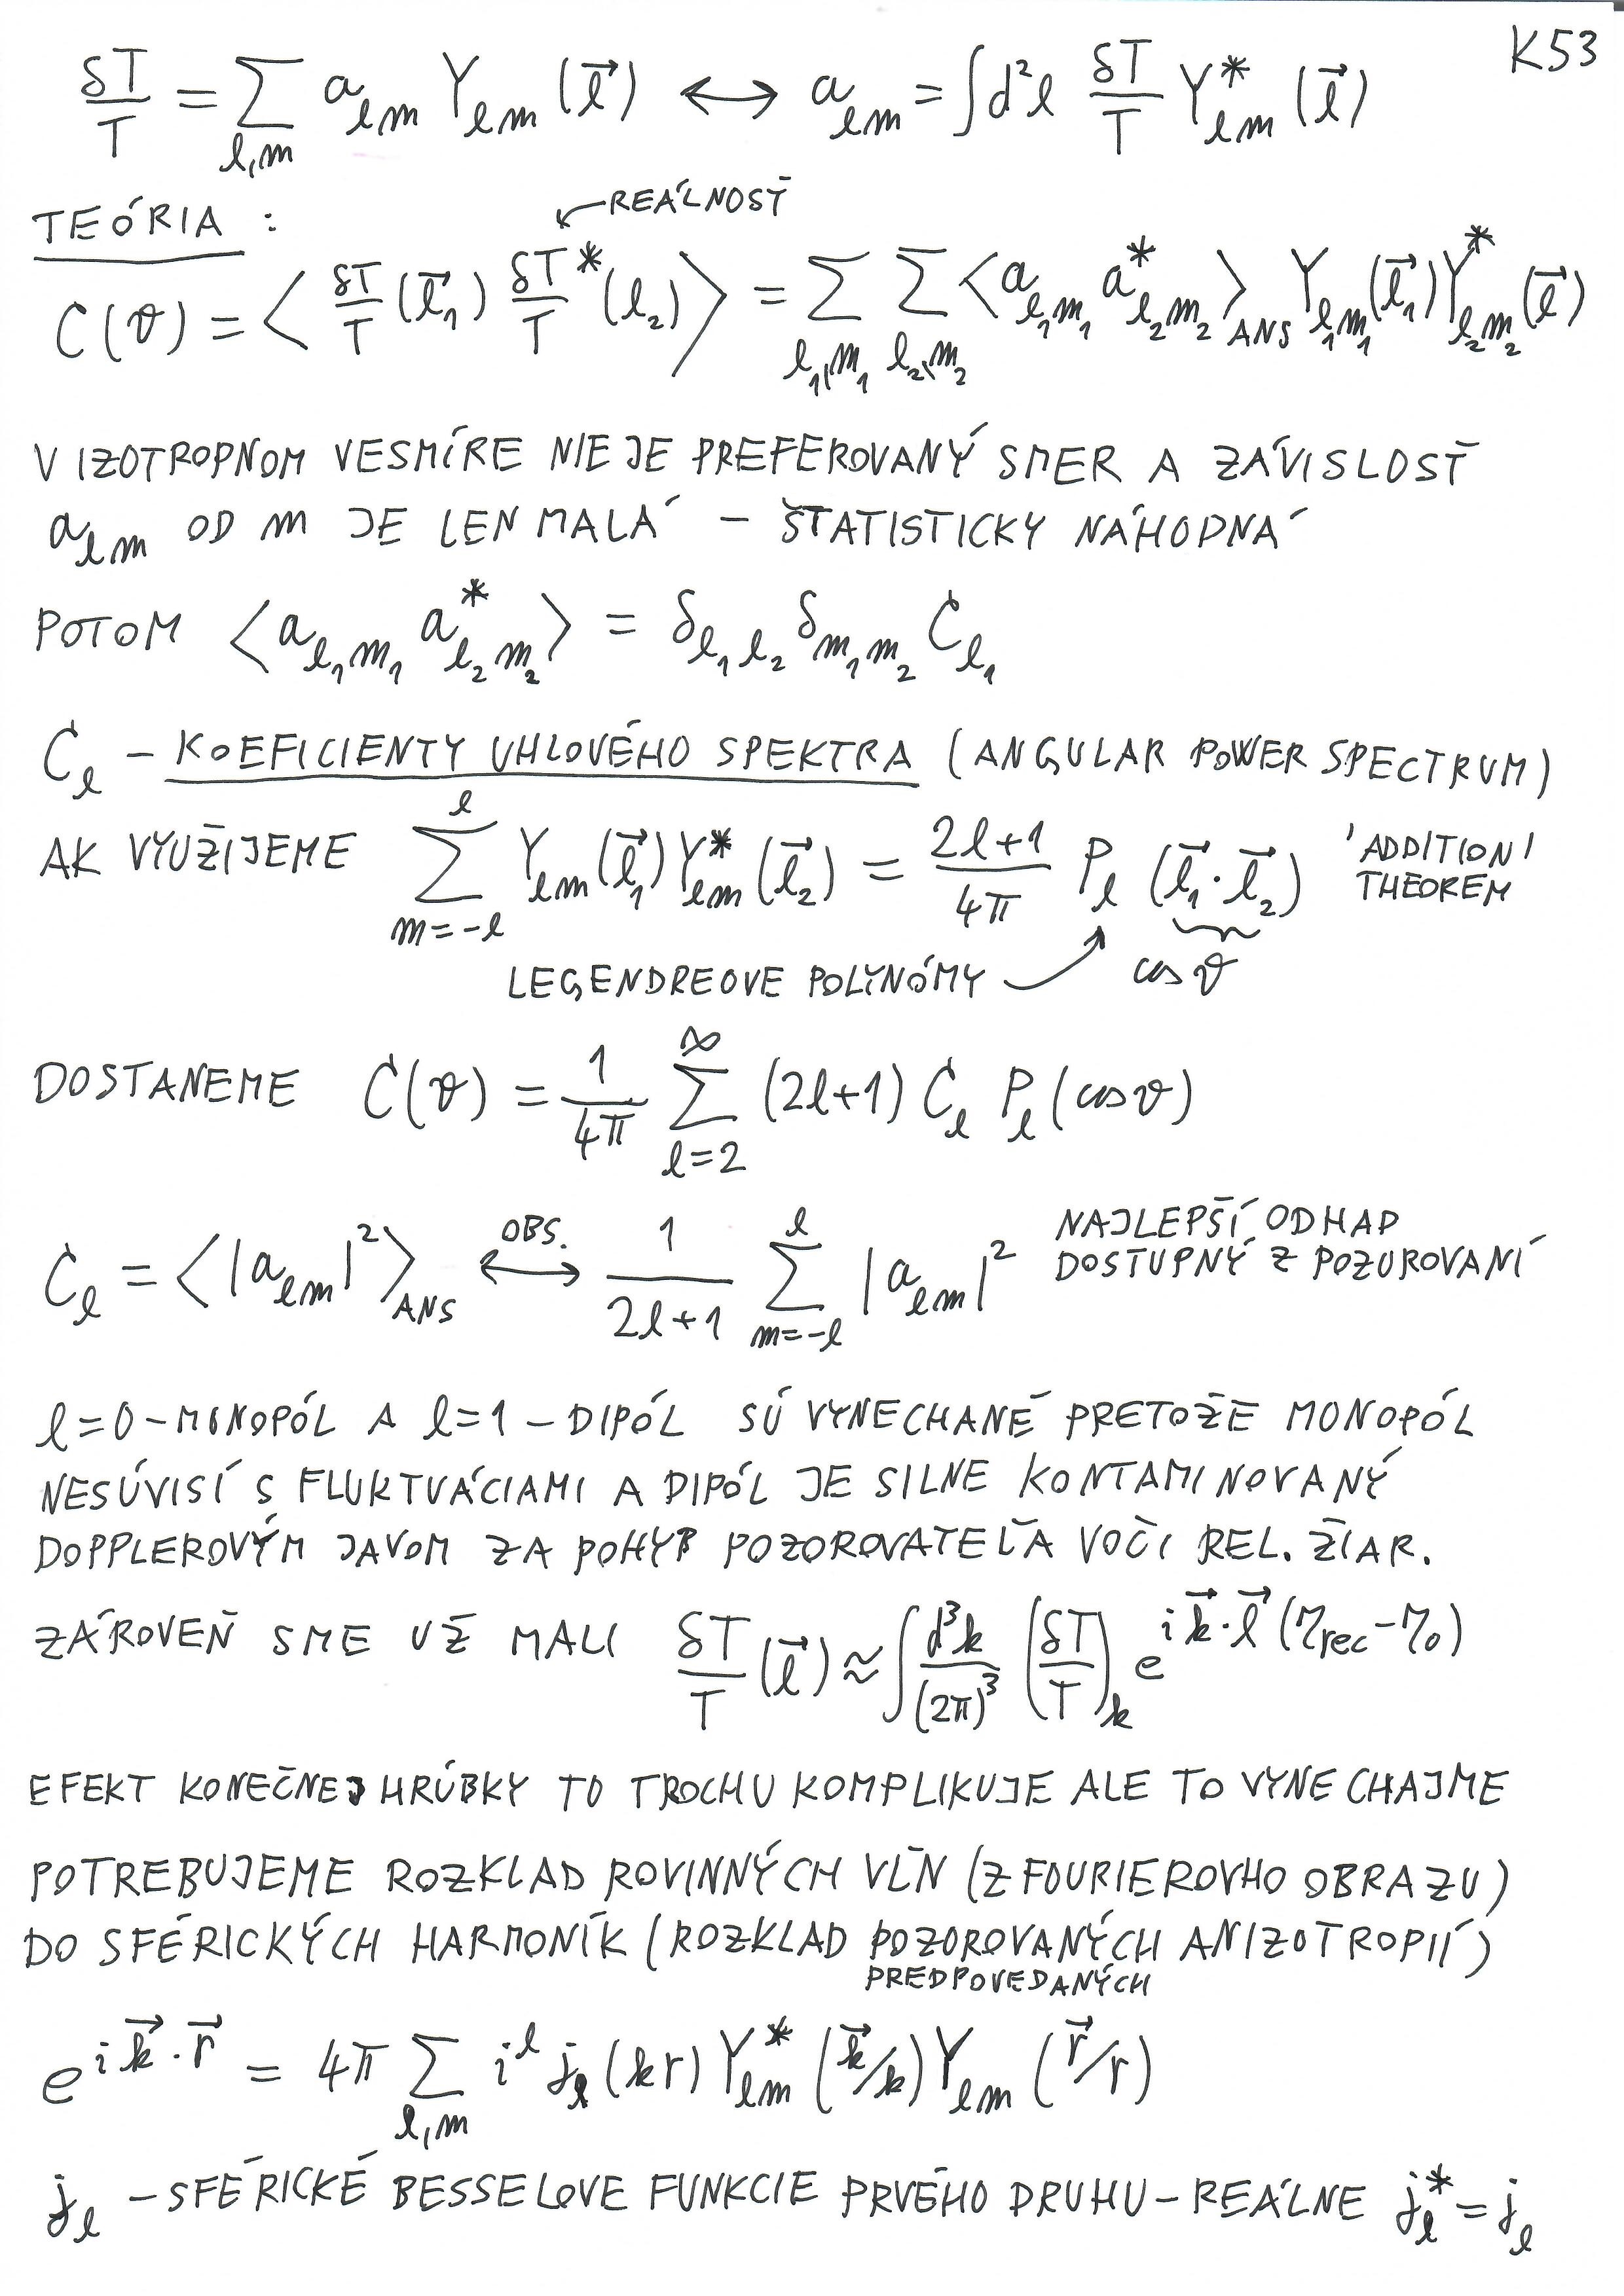 K53
δT/T = ∑_{l,m} a_{lm} Y_{lm}(l⃗) ⟷ a_{lm} = ∫d²l δT/T Y*_{lm}(l⃗)
TEÓRIA :
↙ REÁLNOSŤ
C(ϑ) = ⟨ δT/T(l⃗₁) δT/T*(l₂) ⟩ = ∑_{l₁,m₁} ∑_{l₂,m₂} ⟨a_{l₁m₁} a*_{l₂m₂}⟩_{ANS} Y_{l₁m₁}(l⃗₁) Y*_{l₂m₂}(l⃗)
V IZOTROPNOM VESMÍRE NIE JE PREFEROVANÝ SMER A ZÁVISLOSŤ
a_{lm} OD m JE LEN MALÁ – ŠTATISTICKY NÁHODNÁ
POTOM ⟨a_{l₁m₁} a*_{l₂m₂}⟩ = δ_{l₁l₂} δ_{m₁m₂} C_{l₁}
C_l – KOEFICIENTY UHLOVÉHO SPEKTRA (ANGULAR POWER SPECTRUM)
AK VYUŽIJEME ∑_{m=-l}^{l} Y_{lm}(l⃗₁) Y*_{lm}(l⃗₂) = (2l+1)/4π P_l (l⃗₁·l⃗₂) 'ADDITION'
THEOREM
LEGENDREOVE POLYNÓMY ↗ cosϑ
DOSTANEME C(ϑ) = 1/4π ∑_{l=2}^{∞} (2l+1) C_l P_l(cosϑ)
C_l = ⟨|a_{lm}|²⟩_{ANS} ⟷^{OBS.} 1/(2l+1) ∑_{m=-l}^{l} |a_{lm}|² NAJLEPŠÍ ODHAD
DOSTUPNÝ Z POZOROVANÍ
l=0 – MONOPÓL A l=1 – DIPÓL SÚ VYNECHANÉ PRETOŽE MONOPÓL
NESÚVISÍ S FLUKTUÁCIAMI A DIPÓL JE SILNE KONTAMINOVANÝ
DOPPLEROVÝM JAVOM ZA POHYB POZOROVATEĽA VOČI REL. ŽIAR.
ZÁROVEŇ SME UŽ MALI δT/T(l⃗) ≈ ∫ d³k/(2π)³ (δT/T)_k e^{i k⃗·l⃗(η_{rec}-η₀)}
EFEKT KONEČNEJ HRÚBKY TO TROCHU KOMPLIKUJE ALE TO VYNECHAJME
POTREBUJEME ROZKLAD ROVINNÝCH VĹN (Z FOURIEROVHO OBRAZU)
DO SFÉRICKÝCH HARMONÍK (ROZKLAD POZOROVANÝCH ANIZOTROPIÍ)
PREDPOVEDANÝCH
e^{i k⃗·r⃗} = 4π ∑_{l,m} i^l j_l(kr) Y*_{lm}(k⃗/k) Y_{lm}(r⃗/r)
j_l – SFÉRICKÉ BESSELOVE FUNKCIE PRVÉHO DRUHU – REÁLNE j*_l = j_l